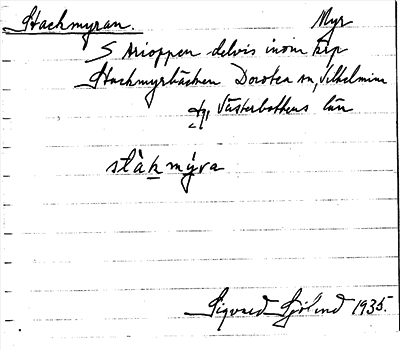 Stackmyran. Myr
S Arioppen delvis inom krp
Stackmyrbäcken Dorotea sn, Vilhelmina
tg, Västerbottens län
stàkmýra
Sigvard Sjölund 1935.